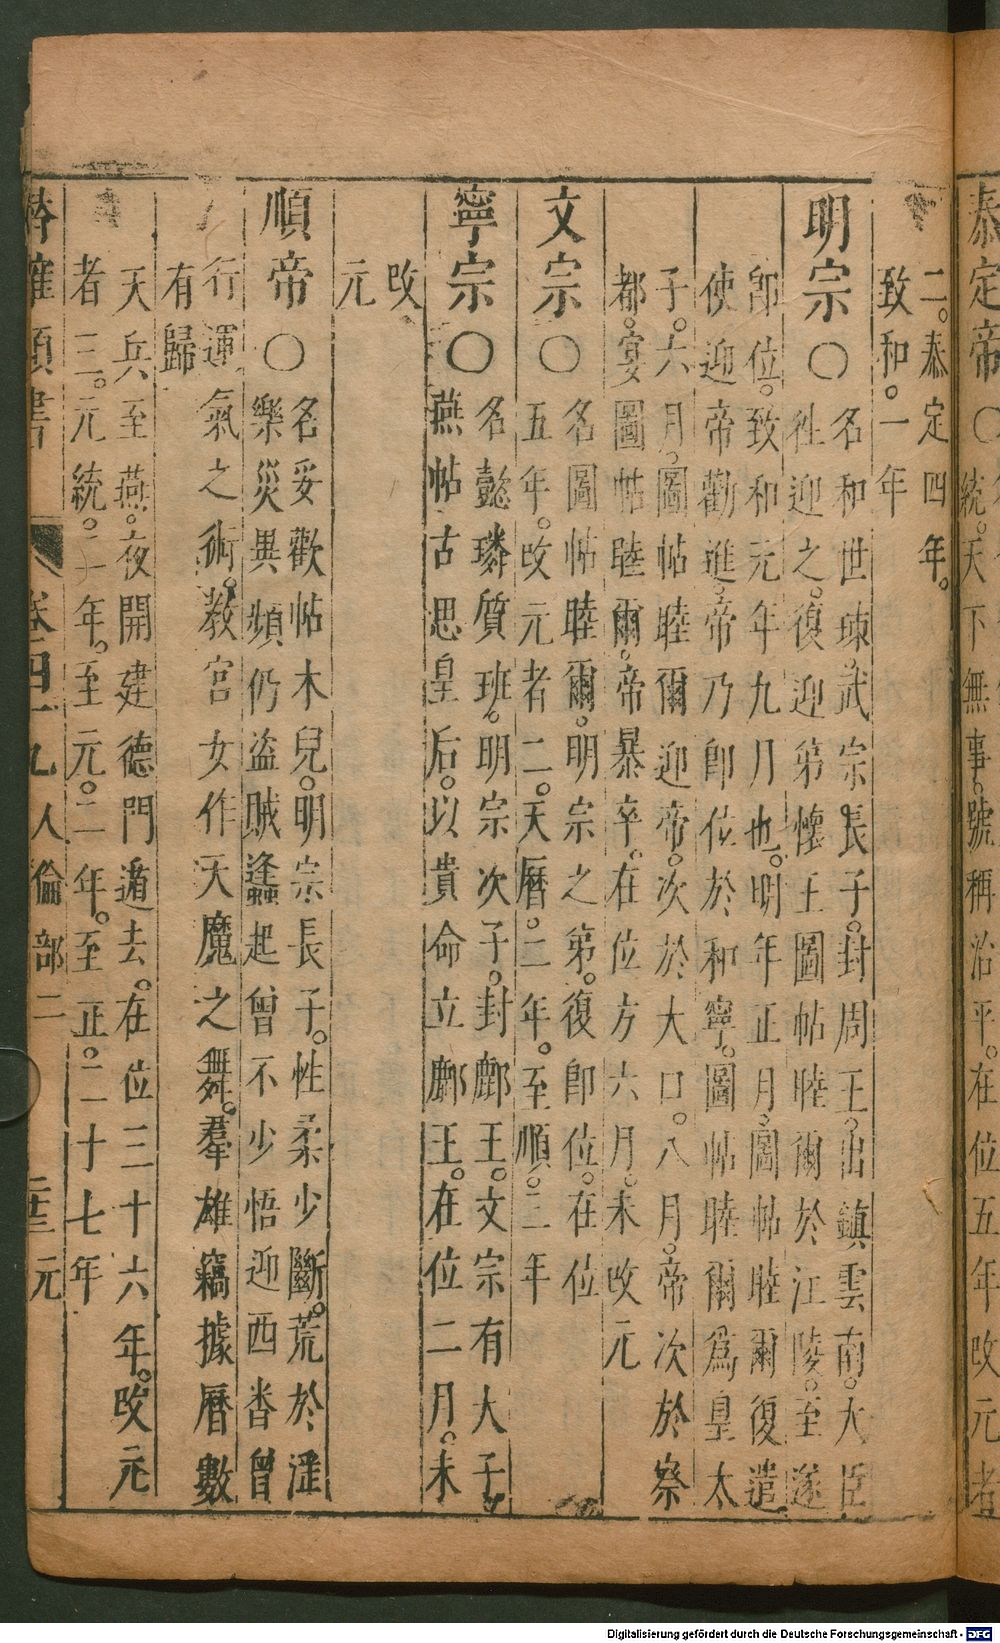 泰定帝○統。天下無事。號稱治平。在位五年改元者
二。泰定四年。
致和。一年
明宗○名和世㻋。武宗長子。封周王。出鎮雲南。大臣
徃迎之。復迎第懷王圖帖睦爾於江陵。至遂
卽位。致和元年九月也。明年正月。圖帖睦爾復遣
使迎帝勸進。帝乃卽位於和寧。圖帖睦爾爲皇太
子。六月。圖帖睦爾迎帝。次於大口。八月。帝次於察
都。宴圖帖睦爾。帝暴卒。在位方六月。未改元
文宗○名圖帖睦爾。明宗之第。復卽位。在位
五年。改元者二。天曆。二年。至順。二年
寧宗○名懿璘質班。明宗次子。封鄜王。文宗有大子
燕帖古思皇后。以貴命立鄜王。在位二月。未
改
元
順帝○名妥歡帖木兒。明宗長子。性柔少斷。荒於滛
樂災異頻仍盗賊蠭起曾不少悟迎西畨曾
行運氣之術。教宮女作天魔之舞。羣雄竊據曆數
有歸
天兵至燕。夜開建德門遁去。在位三十六年。改元
者三。元統。二年。至元。二年。至正。二十七年
卷四十九人倫部二
元
Digitalisierung gefördert durch die Deutsche Forschungsgemeinschaft - DFG